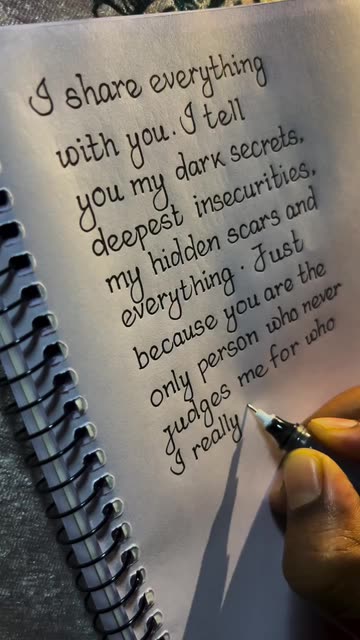 I share everything
with you. I tell
you my dark secrets,
deepest insecurities,
my hidden scars and
everything. Just
because you are the
only person who never
judges me for who
I really